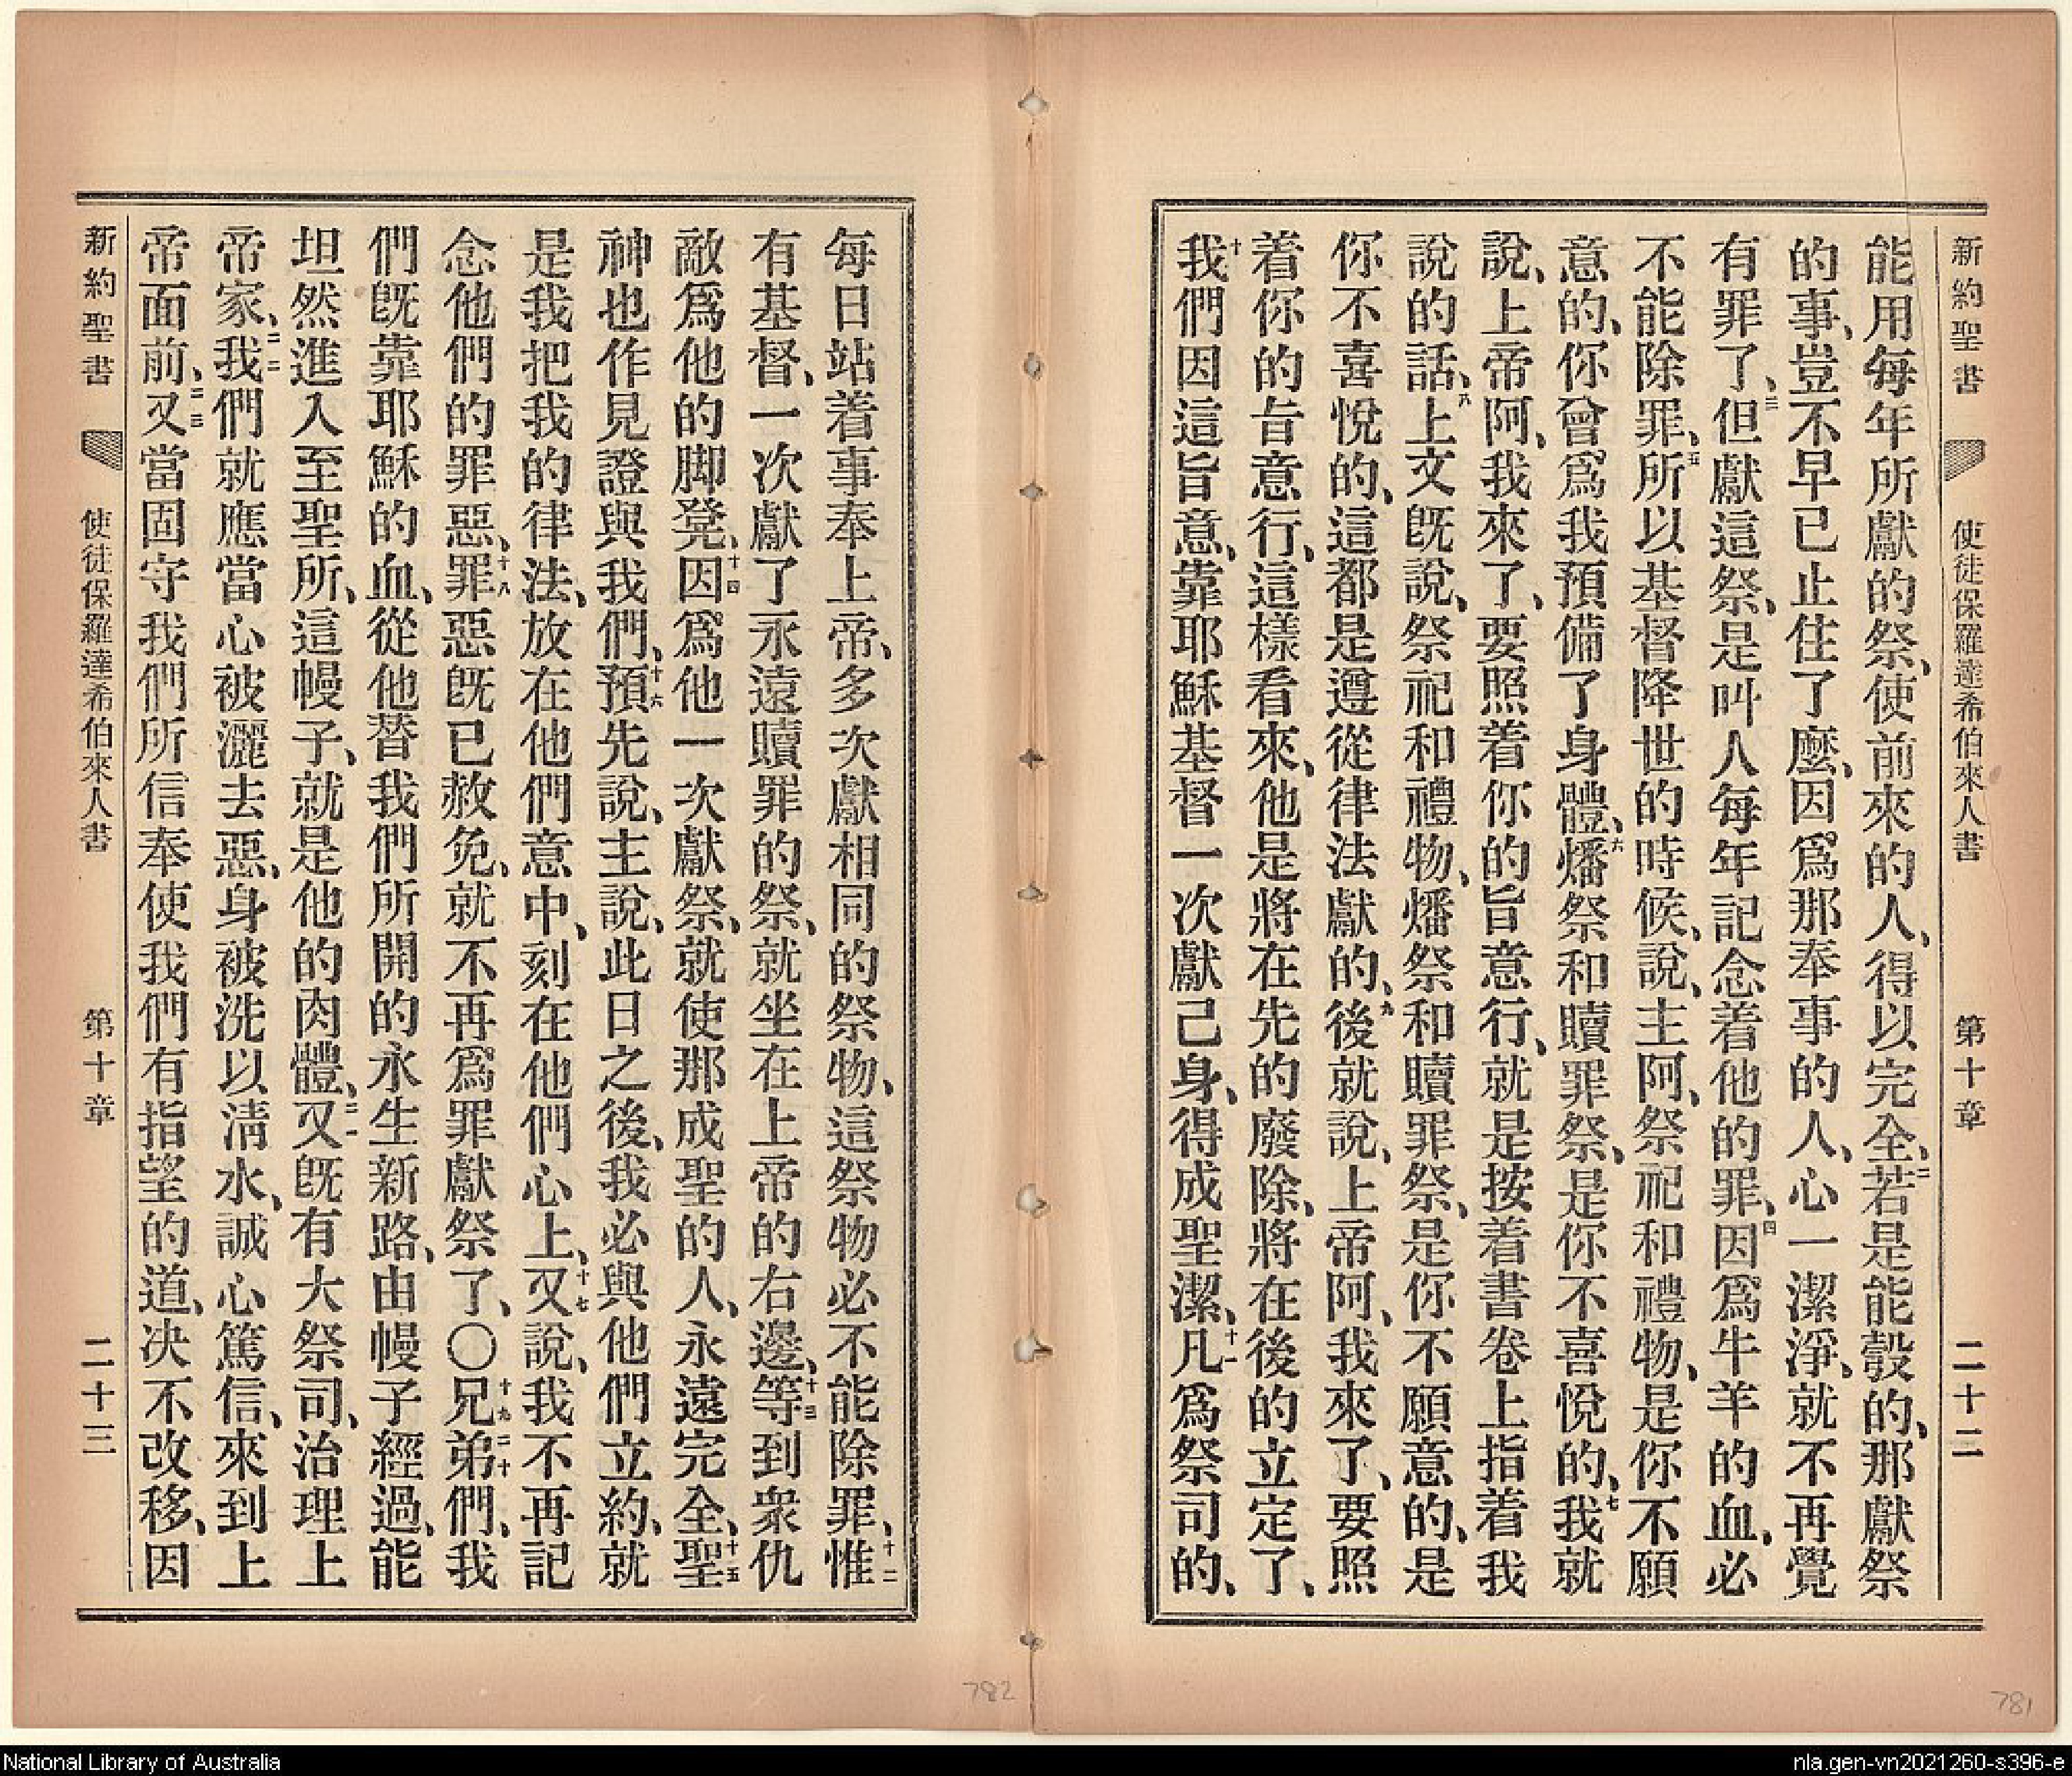 新約聖書 使徒保羅達希伯來人書 第十章 二十二
能用每年所獻的祭、使前來的人、得以完全、二若是能彀的、那獻祭
的事、豈不早已止住了麼、因爲那奉事的人、心一潔淨、就不再覺
有罪了、三但獻這祭、是叫人每年記念着他的罪、四因爲牛羊的血、必
不能除罪、五所以基督降世的時候、說、主阿、祭祀和禮物、是你不願
意的、你曾爲我預備了身體、六燔祭和贖罪祭、是你不喜悅的、七我就
說、上帝阿、我來了、要照着你的旨意行、就是按着書卷上指着我
說的話、八上文旣說、祭祀和禮物、燔祭和贖罪祭、是你不願意的、是
你不喜悅的、這都是遵從律法獻的、九後就說、上帝阿、我來了、要照
着你的旨意行、這樣看來、他是將在先的廢除、將在後的立定了、
十我們因這旨意、靠耶穌基督一次獻己身、得成聖潔、十一凡爲祭司的、
每日站着事奉上帝、多次獻相同的祭物、這祭物必不能除罪、十二惟
有基督、一次獻了永遠贖罪的祭、就坐在上帝的右邊、十三等到衆仇
敵爲他的脚凳、十四因爲他一次獻祭、就使那成聖的人、永遠完全、十五聖
神也作見證與我們、十六預先說、主說、此日之後、我必與他們立約、就
是我把我的律法、放在他們意中、刻在他們心上、十七又說、我不再記
念他們的罪惡、十八罪惡旣已赦免、就不再爲罪獻祭了、〇十九兄二十弟們、我
們旣靠耶穌的血、從他替我們所開的永生新路、由幔子經過、能
坦然進入至聖所、這幔子、就是他的肉體、二一又旣有大祭司、治理上
帝家、二二我們就應當心被灑去惡、身被洗以清水、誠心篤信、來到上
帝面前、二三又當固守我們所信奉使我們有指望的道、决不改移、因
新約聖書 使徒保羅達希伯來人書 第十章 二十三
782
781
National Library of Australia
nla.gen-vn2021260-s396-e